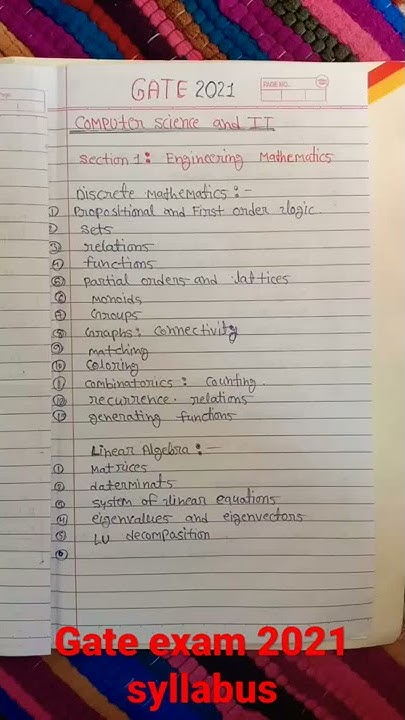 GATE 2021
PAGE NO.
Computer Science and IT
Section 1: Engineering Mathematics
Discrete Mathematics :-
① Propositional and First order logic.
② sets
③ relations
④ functions
⑤ partial orders and lattices
⑥ monoids
⑦ Groups
⑧ Graphs: connectivity
⑨ matching
⑩ coloring
⑪ combinatorics : counting.
⑫ recurrence relations
⑬ generating functions
Linear Algebra :-
① Matrices
② daterminats
③ system of linear equations
④ eigenvalues and eigenvectors
⑤ LU decomposition
⑥
Gate exam 2021
syllabus